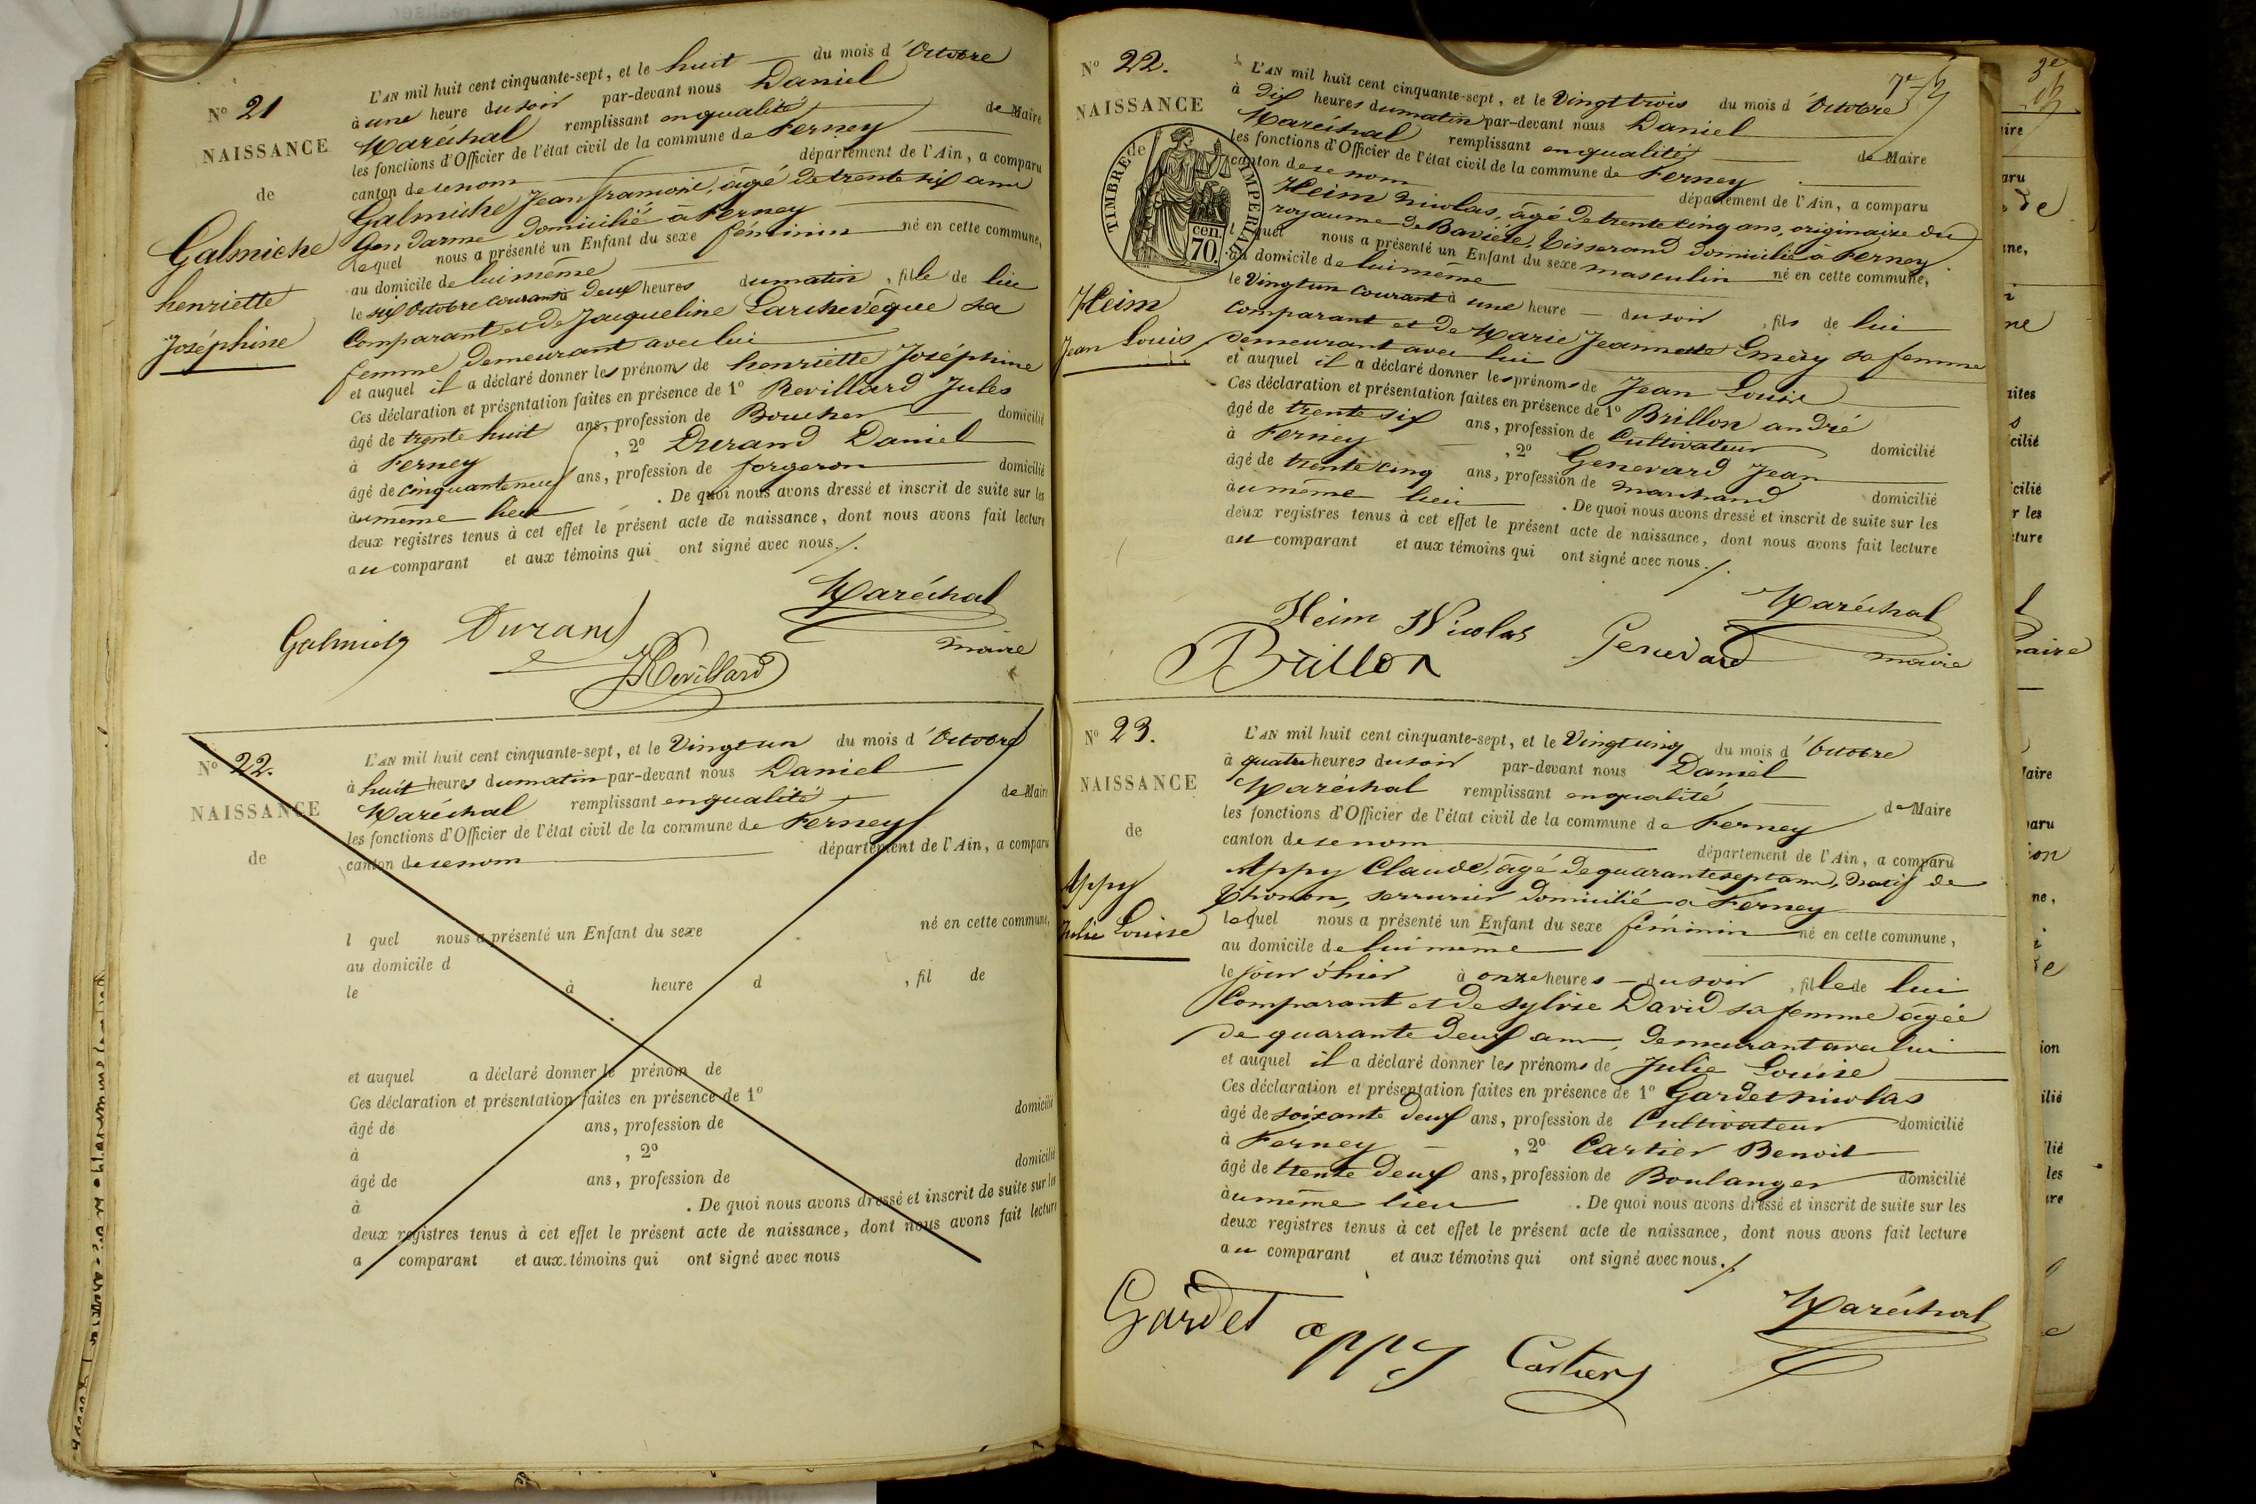 N° 21
NAISSANCE
de
Galmiche
henriette
Joséphine
L'AN mil huit cent cinquante-sept, et le huit du mois d'Octobre
à une heure du soir par-devant nous Daniel
Maréchal remplissant en qualité de Maire
les fonctions d'Officier de l'état civil de la commune de Ferney
canton de ce nom département de l'Ain, a comparu
Galmiche Jean françois, âgé de trente six ans
Gendarme domicilié à Ferney
lequel nous a présenté un Enfant du sexe féminin né en cette commune,
au domicile de lui même
le six Octobre courant à deux heures du matin, fille de lui
Comparant et de Jacqueline Larchevêque sa
femme demeurant avec lui
et auquel il a déclaré donner les prénoms de henriette Joséphine
Ces déclaration et présentation faites en présence de 1° Revillard Jules
âgé de trente huit ans, profession de Boucher domicilié
à Ferney, 2° Durand Daniel
âgé de cinquante neuf ans, profession de forgeron domicilié
au même lieu. De quoi nous avons dressé et inscrit de suite sur les
deux registres tenus à cet effet le présent acte de naissance, dont nous avons fait lecture
au comparant et aux témoins qui ont signé avec nous./.
Maréchal
maire
Galmiche Durand
JRevillard
N° 22.
NAISSANCE
de
L'AN mil huit cent cinquante-sept, et le Vingt un du mois d'Octobre
à huit heures du matin par-devant nous Daniel
Maréchal remplissant en qualité de Maire
les fonctions d'Officier de l'état civil de la commune de Ferney
canton de ce nom département de l'Ain, a comparu
l quel nous a présenté un Enfant du sexe né en cette commune,
au domicile d
le à heure d , fil de
et auquel a déclaré donner le prénom de
Ces déclaration et présentation faites en présence de 1°
âgé de ans, profession de domicilié
à , 2°
âgé de ans, profession de domicilié
à . De quoi nous avons dressé et inscrit de suite sur les
deux registres tenus à cet effet le présent acte de naissance, dont nous avons fait lecture
a comparant et aux témoins qui ont signé avec nous
7e
N° 22.
NAISSANCE
de
TIMBRE IMPERIAL
cen. 70.
Heim
Jean Louis
L'AN mil huit cent cinquante-sept, et le Vingt trois du mois d'Octobre
à dix heures du matin par-devant nous Daniel
Maréchal remplissant en qualité de Maire
les fonctions d'Officier de l'état civil de la commune de Ferney
canton de ce nom département de l'Ain, a comparu
Heim Nicolas, âgé de trente cinq ans, originaire du
royaume de Bavière, Tisserand domicilié à Ferney.
l quel nous a présenté un Enfant du sexe masculin né en cette commune,
au domicile de lui même
le Vingt un courant à une heure du soir, fils de lui
Comparant et de Marie Jeannette Emery sa femme
demeurant avec lui
et auquel il a déclaré donner les prénoms de Jean Louis
Ces déclaration et présentation faites en présence de 1° Brillon andré
âgé de trente six ans, profession de Cultivateur domicilié
à Ferney, 2° Genevard Jean
âgé de trente cinq ans, profession de marchand domicilié
au même lieu. De quoi nous avons dressé et inscrit de suite sur les
deux registres tenus à cet effet le présent acte de naissance, dont nous avons fait lecture
au comparant et aux témoins qui ont signé avec nous./.
Maréchal
maire
Heim Nicolas Genevard
Brillon
N° 23.
NAISSANCE
de
Appy
Julie Louise
L'AN mil huit cent cinquante-sept, et le Vingt cinq du mois d'Octobre
à quatre heures du soir par-devant nous Daniel
Maréchal remplissant en qualité de Maire
les fonctions d'Officier de l'état civil de la commune de Ferney
canton de ce nom département de l'Ain, a comparu
Appy Claude, âgé de quarante sept ans, natif de
Thonon, serrurier domicilié à Ferney
lequel nous a présenté un Enfant du sexe féminin né en cette commune,
au domicile de lui même
le jour d'hier à onze heures du soir, fille de lui
Comparant et de Sylvie David sa femme âgée
de quarante deux ans, demeurant avec lui
et auquel il a déclaré donner les prénoms de Julie Louise
Ces déclaration et présentation faites en présence de 1° Gardet Nicolas
âgé de soixante deux ans, profession de Cultivateur domicilié
à Ferney, 2° Cartier Benoit
âgé de trente deux ans, profession de Boulanger domicilié
au même lieu. De quoi nous avons dressé et inscrit de suite sur les
deux registres tenus à cet effet le présent acte de naissance, dont nous avons fait lecture
au comparant et aux témoins qui ont signé avec nous./.
Maréchal
Gardet appy Cartier